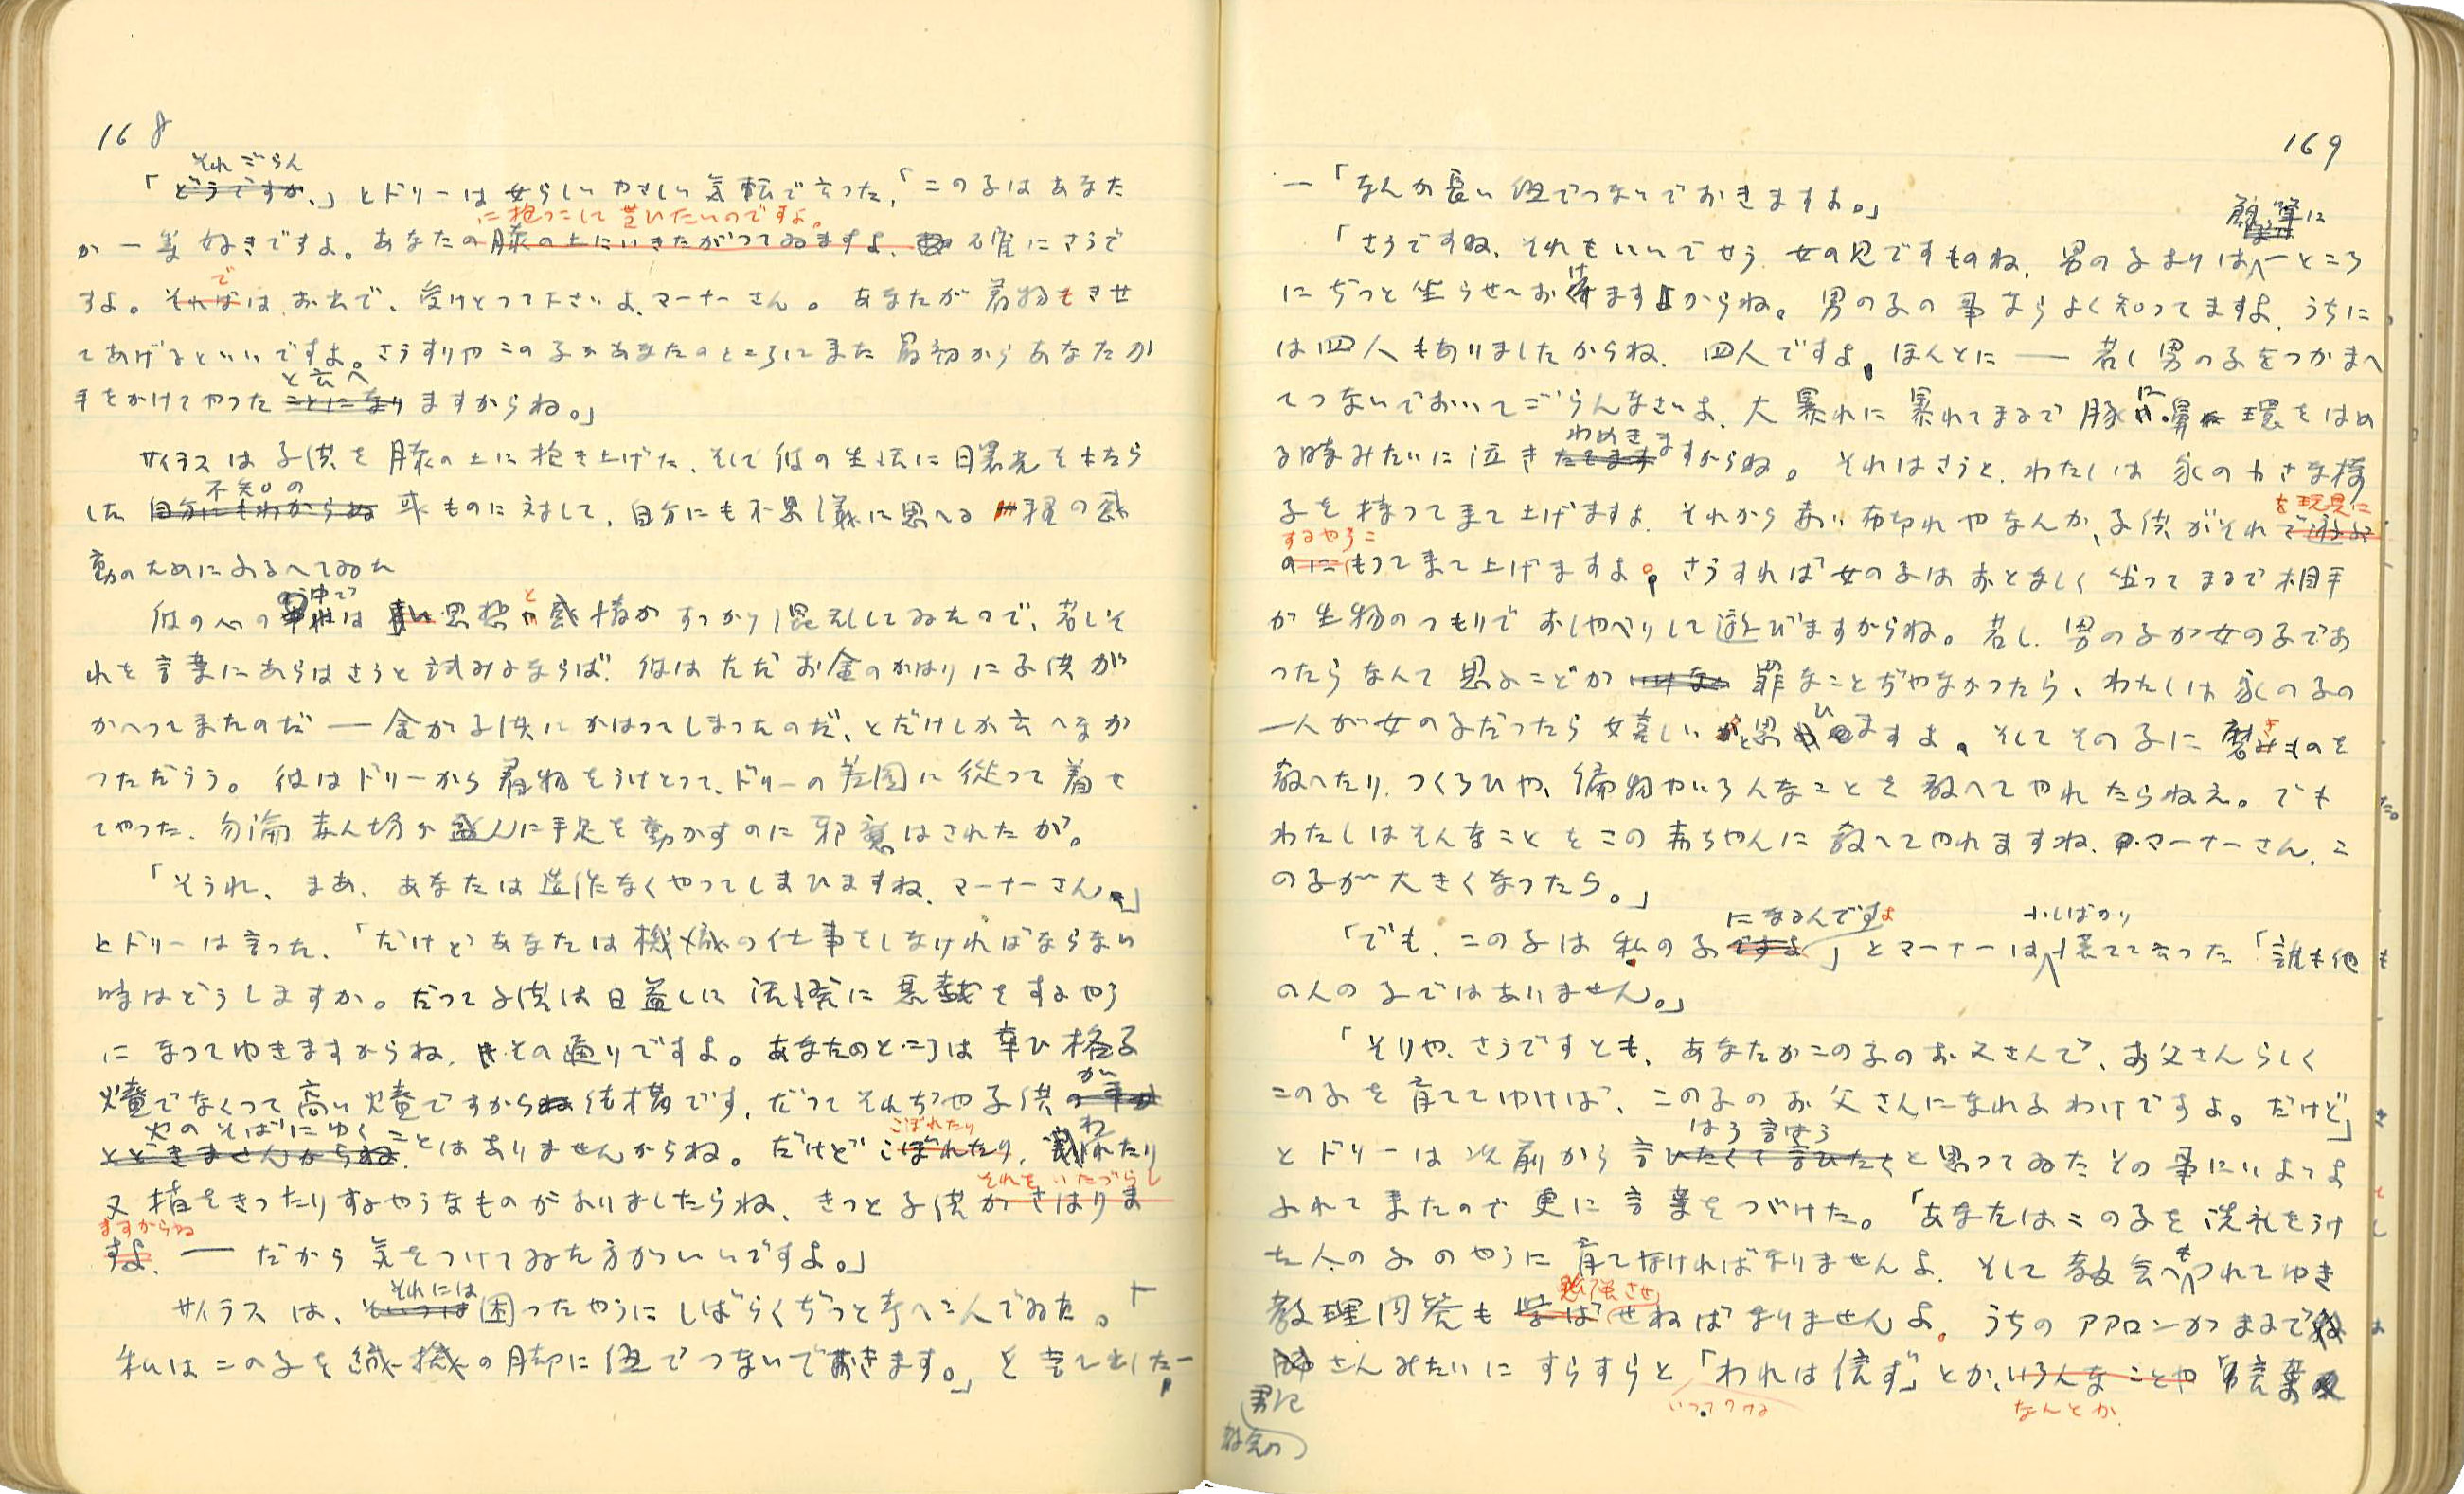 168
それごらん
「どうですか、」とドリーは女らしいやさしい気転で云つた、「この子はあなた
に抱つこして貰ひたいのですよ。
が一等好きですよ。あなたの膝の上にいきたがつてゐますよ、確にさうで
で
すよ。そればは、お出で、受けとつて下さいよ、マーナーさん。あなたが着物をきせ
てあげるといいですよ。さうすりやこの子があなたのところにきた最初からあなたが
と云へ
手をかけてやつたことになりますからね。」
サイラスは子供を膝の上に抱き上げた、そして彼の生活に日署光をもたら
不知の
した自分にもわからぬ或ものに対して、自分にも不思議に思へる一種の感
動のためにふるへてゐた
の中で
彼の心の中は思想と感情がすつかり混乱してゐたので、若しそ
れを言葉にあらはさうと試みるならば、彼はただお金のかはりに子供が
かへつてきたのだ — 金が子供にかはつてしまつたのだ、とだけしか云へなか
つただらう。彼はドリーから着物をうけとつて、ドリーの差図に従つて着せ
てやつた、勿論赤ん坊が盛んに手足を動かすのに邪魔はされたが。
「そうれ、まあ、あなたは造作なくやつてしまひますね、マーナーさん。」
とドリーは言つた、「だけどあなたは機織の仕事をしなければならない
時はどうしますか。だつて子供は日益しに活溌に悪戯をするやう
になつてゆきますからね、その通りですよ。あなたのところは幸ひ格子
が
爐でなくつて高い爐ですからね結構です、だつてそれぢや子供の手が
火のそばにゆく こぼれたり わ
とどきませんからねことはありませんからね。だけどこぼれたり、割れたり
それをいたづらし
又指をきつたりするやうなものがありましたらね、きつと子供がさはりま
ますからね
すよ、— だから気をつけてゐた方がいいですよ。」
それには
サイラスは、そいつは困つたやうにしばらくぢつと考へこんでゐた。「
私はこの子を織機の脚に紐でつないでおきます。」と言ひ出した—
169
—「なんか長い紐でつないでおきますよ。」
簡単に
「さうですね、それもいいでせう、女の児ですものね、男の子よりは一ところ
け
にぢつと坐らせておきますよからね。男の子の事ならよく知つてますよ、うちに
は四人もありましたからね、四人ですよ、ほんとに — 若し男の子をつかまへ
に
てつないでおいてごらんなさいよ、大暴れに暴れてまるで豚の鼻に環をはめ
わめきま
る時みたいに泣きたてますますからね。それはさうと、わたしは家の小さな椅
を玩具に
子を持つて来て上げますよ、それから赤い布切れやなんか、子供がそれで遊ぶ
するやうに
のにもつて来て上げますよ。さうすれば女の子はおとなしく坐つてまるで相手
が生物のつもりでおしやべりして遊びますからね。若し、男の子が女の子であ
つたらなんて思ふことがいけない罪なことぢやなかつたら、わたしは家の子の
一人が女の子だつたら嬉しいと思ひますよ。そしてその子に磨きものを
教へたり、つくろひや、編物やいろんなことを教へてやれたらねえ。でも
わたしはそんなことをこの赤ちやんに教へてやれますね、マーナーさん、こ
の子が大きくなつたら。」
になるんですよ 少しばかり
「でも、この子は私の子ですよ」とマーナーは慌てて云つた「誰も他
の人の子ではありません。」
「そりや、さうですとも、あなたがこの子のお父さんで、お父さんらしく
この子を育ててゆけば、この子のお父さんになれるわけですよ。だけど」
はう言はう
とドリーは以前から言ひたくて言ひたくと思つてゐたその事にいよいよ
ふれてきたので更に言葉をつづけた。「あなたはこの子を洗礼をうけ
た人の子のやうに育てなければなりませんよ、そして教会へもつれてゆき
勉強させ
教理問答も学ばせねばなりませんよ。うちのアアロンがまるで
さんみたいにすらすらと「われは信ず」とか、いろんなことや「言葉
いつてのける なんとか
男に
教会の